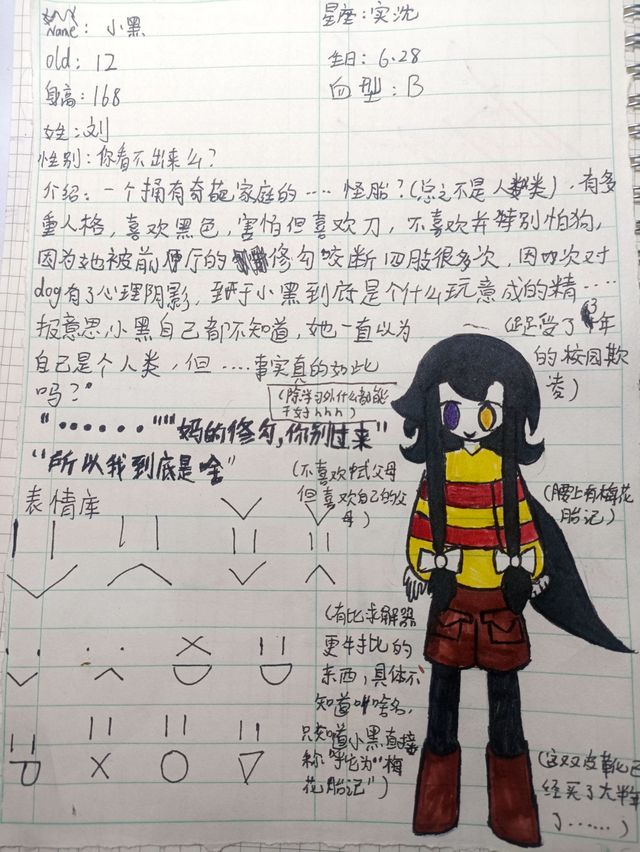 Name: 小黑
星座:实沈
old: 12
生日:6.28
身高:168
血型:B
姓:刘
性别:你看不出来么?
介绍:一个拥有奇葩家庭的····怪胎?(总之不是人类),有多
重人格,喜欢黑色,害怕但喜欢刀,不喜欢并特别怕狗,
因为她被前厅的修勾咬断四肢很多次,因此次对
dog有了心理阴影,至于小黑到底是个什么玩意成的精····
报意思,小黑自己都不知道,她一直以为
(足足受了3年
自己是个人类,但····事实真的如此
的校园欺
吗?"
凌)
(除学习外什么都能
干好hhh)
"······""妈的修勾,你别过来"
"所以我到底是啥"
(不喜欢中式父母
但喜欢自己的父
母)
(腰上有梅花
胎记)
表情库
(有比求解器
更牛比的
东西,具体不
知道叫啥名,
只知道小黑直接
称呼它为"梅
花胎记")
(这双皮靴已
经买了大半年
了······)